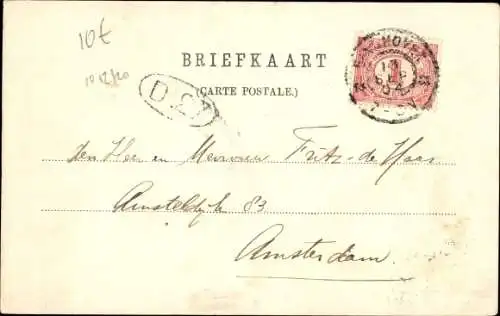 10€
10 12/20
BRIEFKAART
(CARTE POSTALE.)
1
Den Heer en Mevrouw Fritz-de Haas
Amsteldijk 83
Amsterdam.